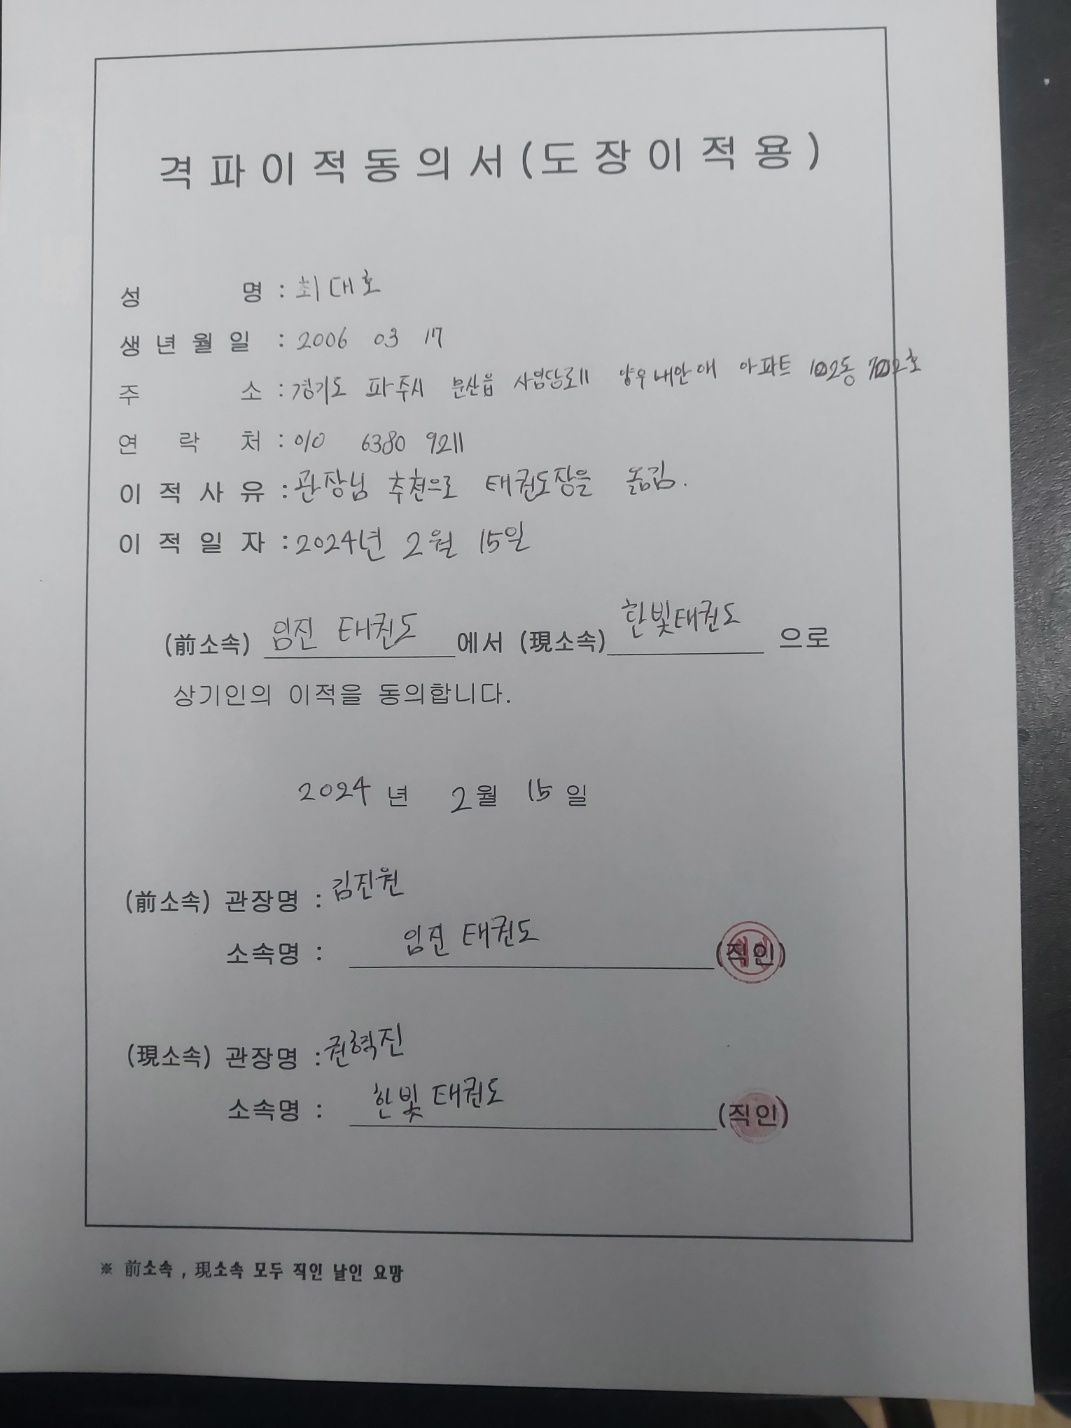 격파이적동의서(도장이적용)
성 명 : 최대호
생년월일 : 2006 03 17
주 소 : 경기도 파주시 문산읍 사임당로11 양우내안애 아파트 102동 702호
연 락 처 : 010 6380 9211
이적사유 : 관장님 추천으로 태권도장을 옮김.
이적일자 : 2024년 2월 15일
(前소속) 임진 태권도 에서 (現소속) 한빛태권도 으로
상기인의 이적을 동의합니다.
2024 년 2월 15일
(前소속) 관장명 : 김진원
소속명 : 임진 태권도 (직인)
(現소속) 관장명 : 권혁진
소속명 : 한빛 태권도 (직인)
※ 前소속 , 現소속 모두 직인 날인 요망